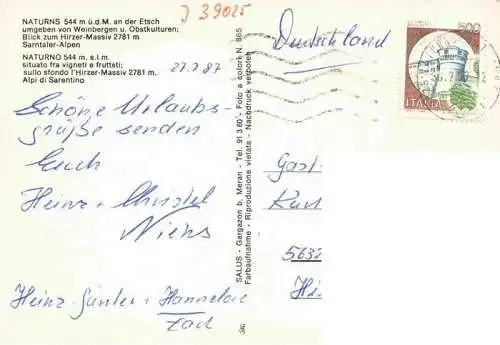 J 39025
NATURNS 544 m ü.d.M. an der Etsch
umgeben von Weinbergen u. Obstkulturen;
Blick zum Hirzer-Massiv 2781 m
Sarntaler-Alpen
NATURNO 544 m. s.l.m.
situato fra vigneti e frutteti;
sullo sfondo l'Hirzer-Massiv 2781 m.
Alpi di Sarentino.
27.7.87
Schöne Urlaubs-
grüße senden
Euch
Heinz + Christel
Niehs
Heinz Günter + Hannelore
SALUS - Gargazon b. Meran - Tel. 91 3 60 - Foto a colori N. 865
Farbaufnahme - Riproduzione vietata - Nachdruck verboten
Deutschland
500
ITALIA
Kurt